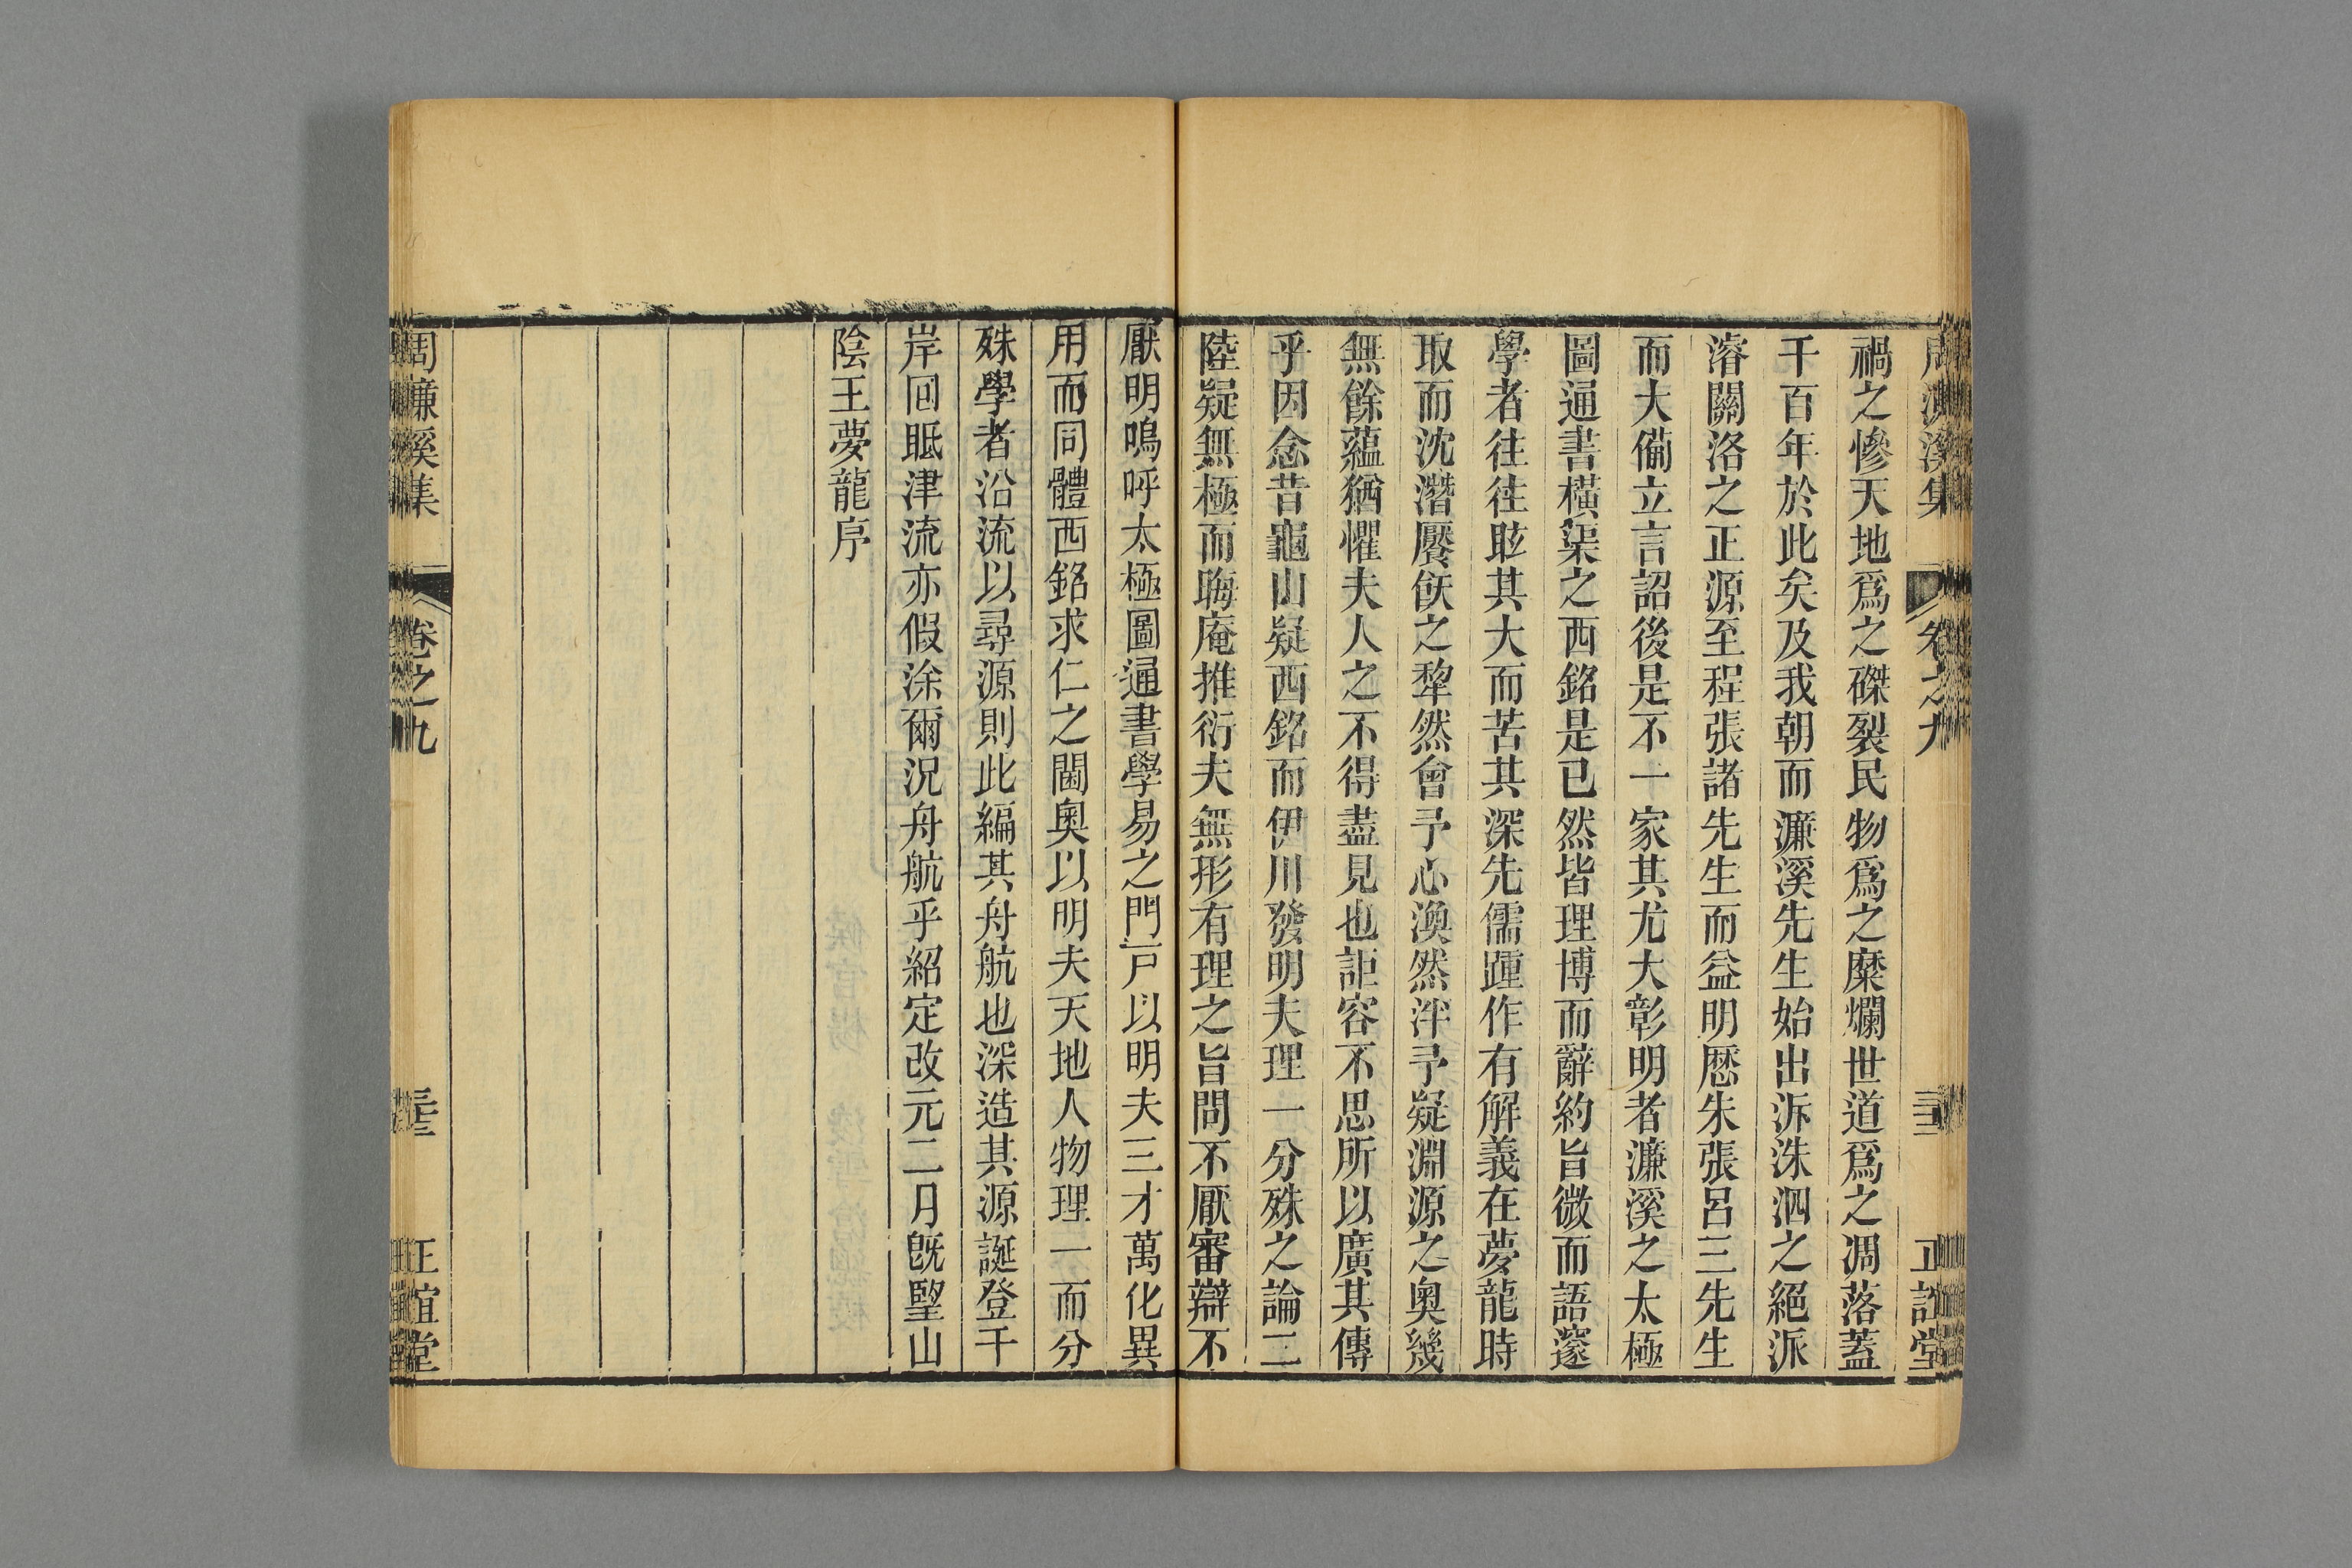 周濂溪集 卷之九 正誼堂
禍之慘天地爲之磔裂民物爲之糜爛世道爲之凋落蓋
千百年於此矣及我朝而濂溪先生始出泝洙泗之絕派
濬關洛之正源至程張諸先生而益明歷朱張呂三先生
而大備立言詔後是不一家其尤大彰明者濂溪之太極
圖通書橫渠之西銘是已然皆理博而辭約旨微而語邃
學者往往眩其大而苦其深先儒踵作有解義在夢龍時
取而沈潛饜飫之犂然會予心渙然泮予疑淵源之奥幾
無餘蘊猶懼夫人之不得盡見也詎容不思所以廣其傳
乎因念昔龜山疑西銘而伊川發明夫理一分殊之論二
陸疑無極而晦庵推衍夫無形有理之旨問不厭審辯不
厭明嗚呼太極圖通書學易之門戸以明夫三才萬化異
用而同體西銘求仁之閫奥以明夫天地人物理一而分
殊學者沿流以尋源則此編其舟航也深造其源誕登于
岸回眡津流亦假涂爾況舟航乎紹定改元二月旣朢山
陰王夢龍序
周濂溪集 卷之九 正誼堂